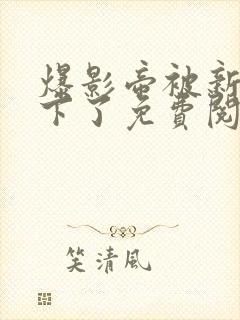 爆影帝被新
下了免費閱
笑清風